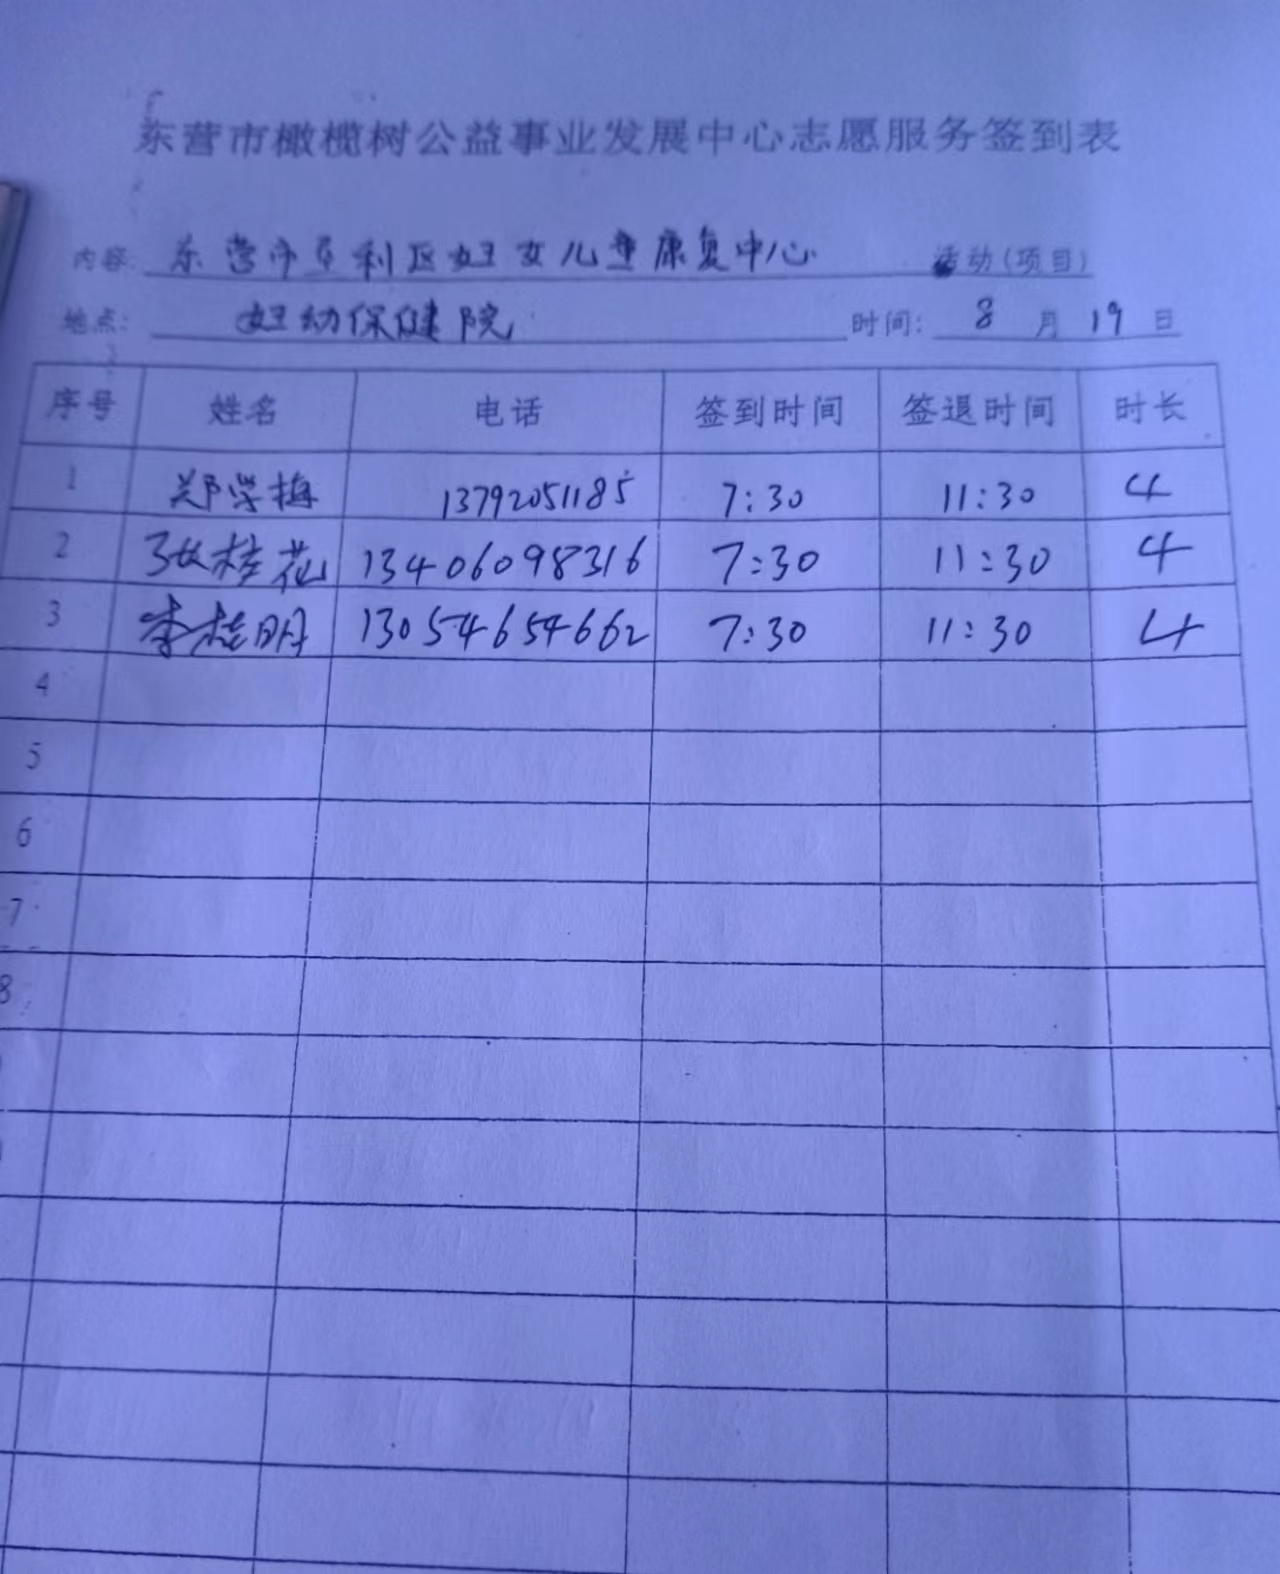 东营市橄榄树公益事业发展中心志愿服务签到表
内容: 东营市垦利区妇女儿童康复中心 活动(项目)
地点: 妇幼保健院 时间: 8 月 19 日
序号 姓名 电话 签到时间 签退时间 时长
1 郑学梅 13792051185 7:30 11:30 4
2 桂花 13406098316 7:30 11:30 4
3 李桂明 13054654662 7:30 11:30 4
4
5
6
7
8